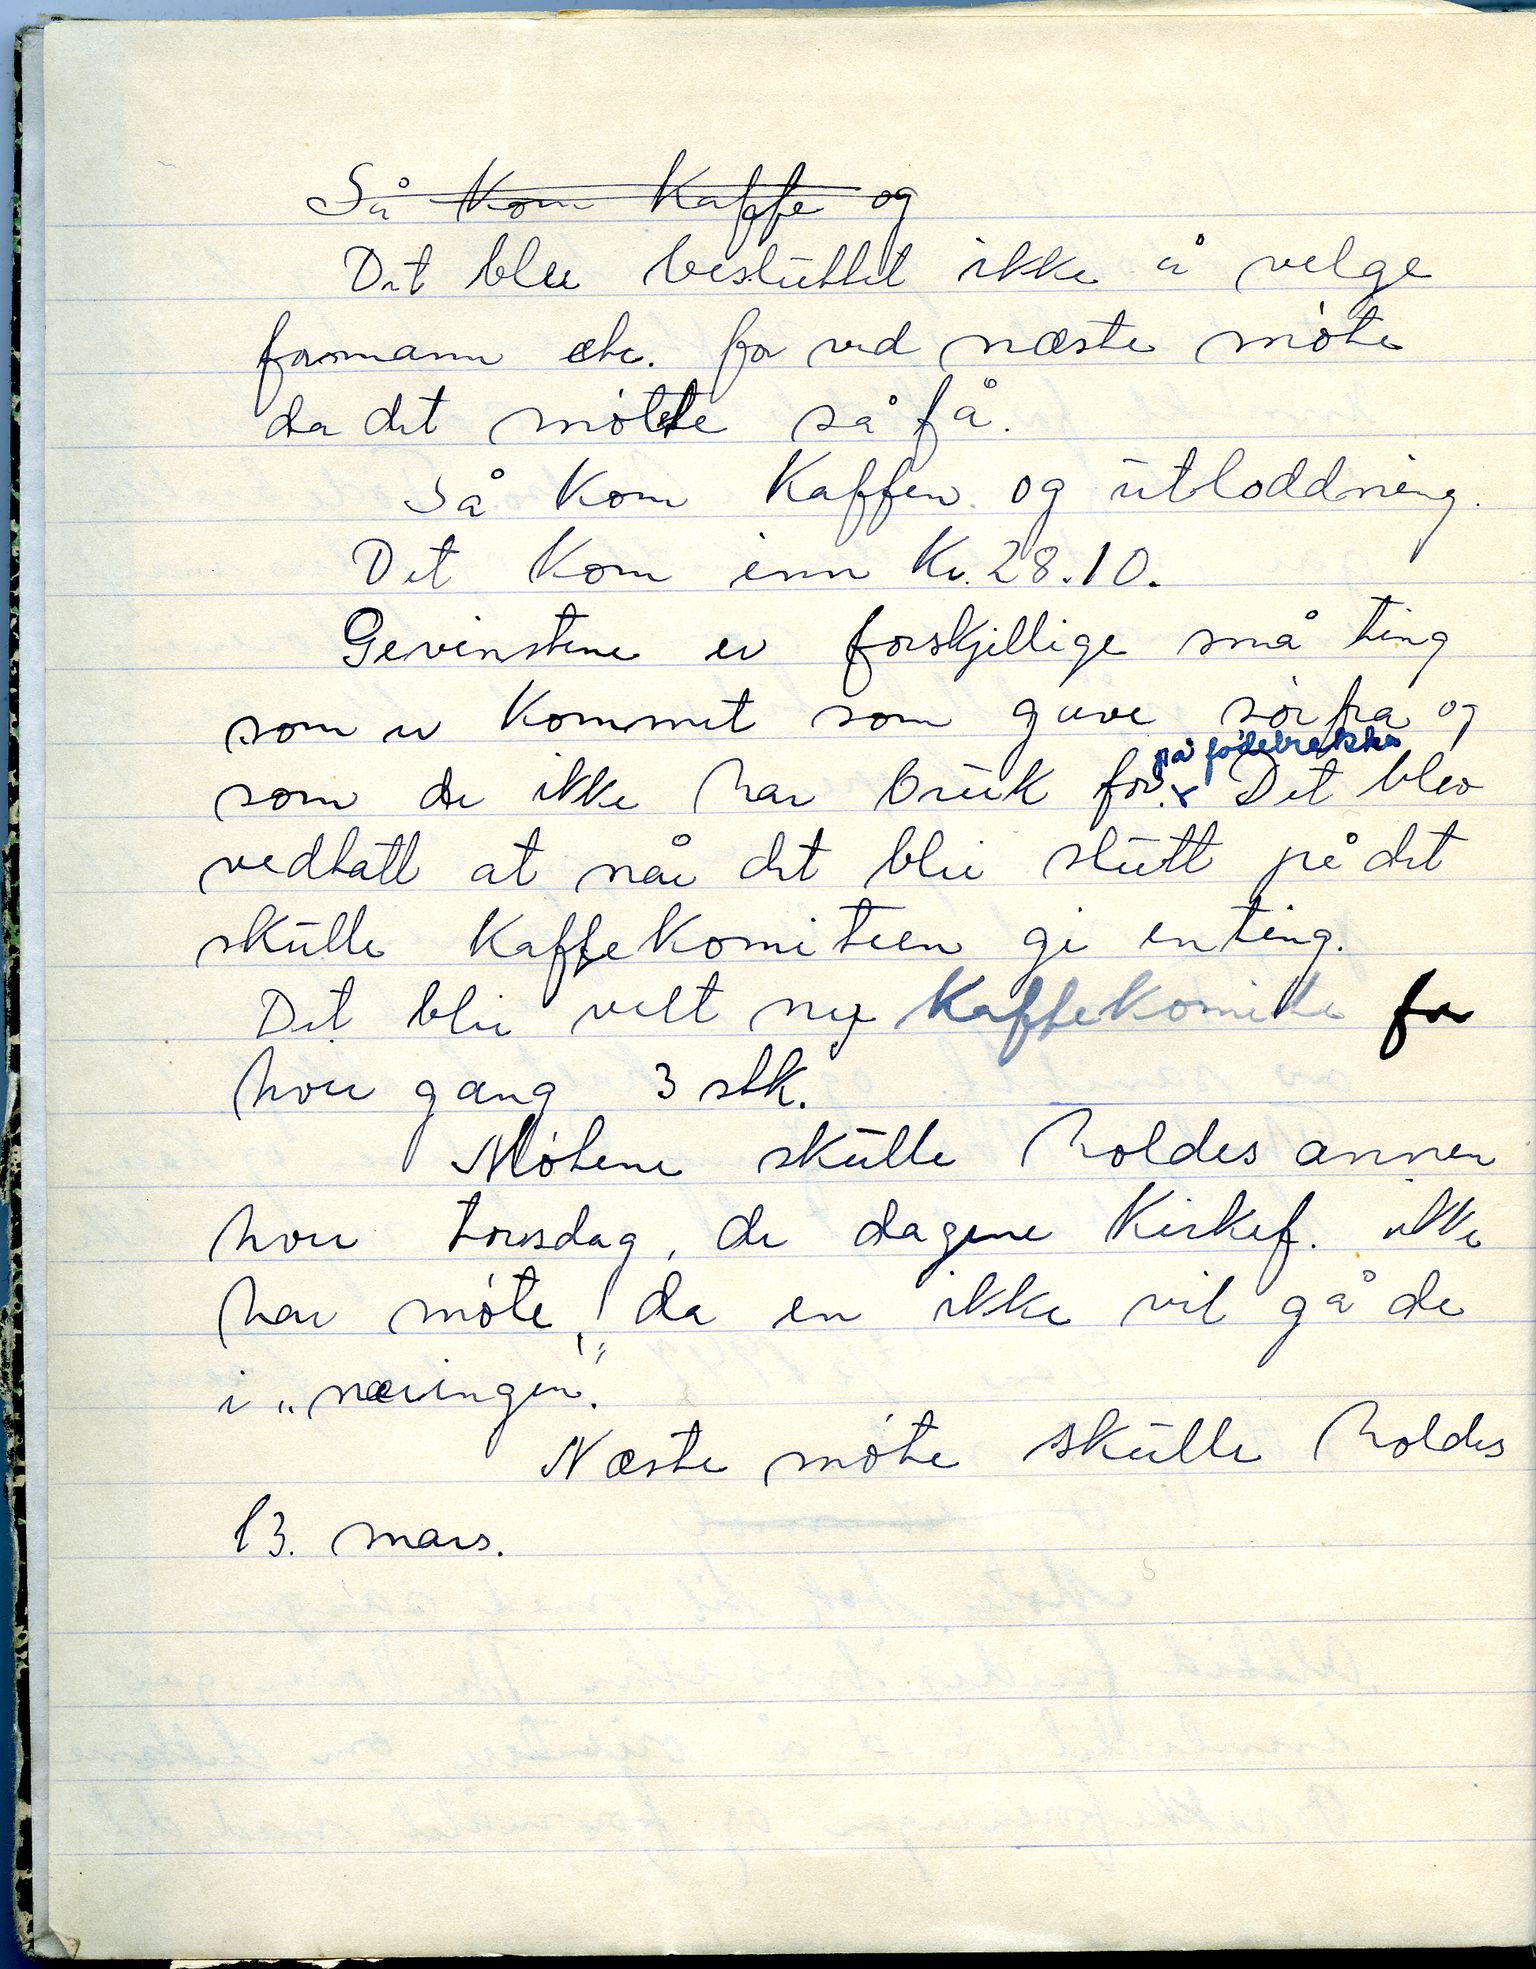 Så kom kaffe og
Det blev besluttet ikke å velge
formann etc. før ved næste møte
da det møtte så få.
Så kom kaffen og utloddning.
Det kom inn Kr. 28.10.
Gevinstene er forskjellige små ting
som er kommet som gave sørfra og
på fødebrakka
som de ikke har bruk for. x Det blev
vedtatt at når det blir slutt på det
skulle kaffekomiteen gi en ting.
Det blir velt ny kaffekomite for
hver gang 3 stk.
Møtene skulle holdes annen
hver torsdag, de dagene Kirkef. ikke
har møte, da en ikke vil gå de
i „næringen".
Næste møte skulle holdes
13. mars.